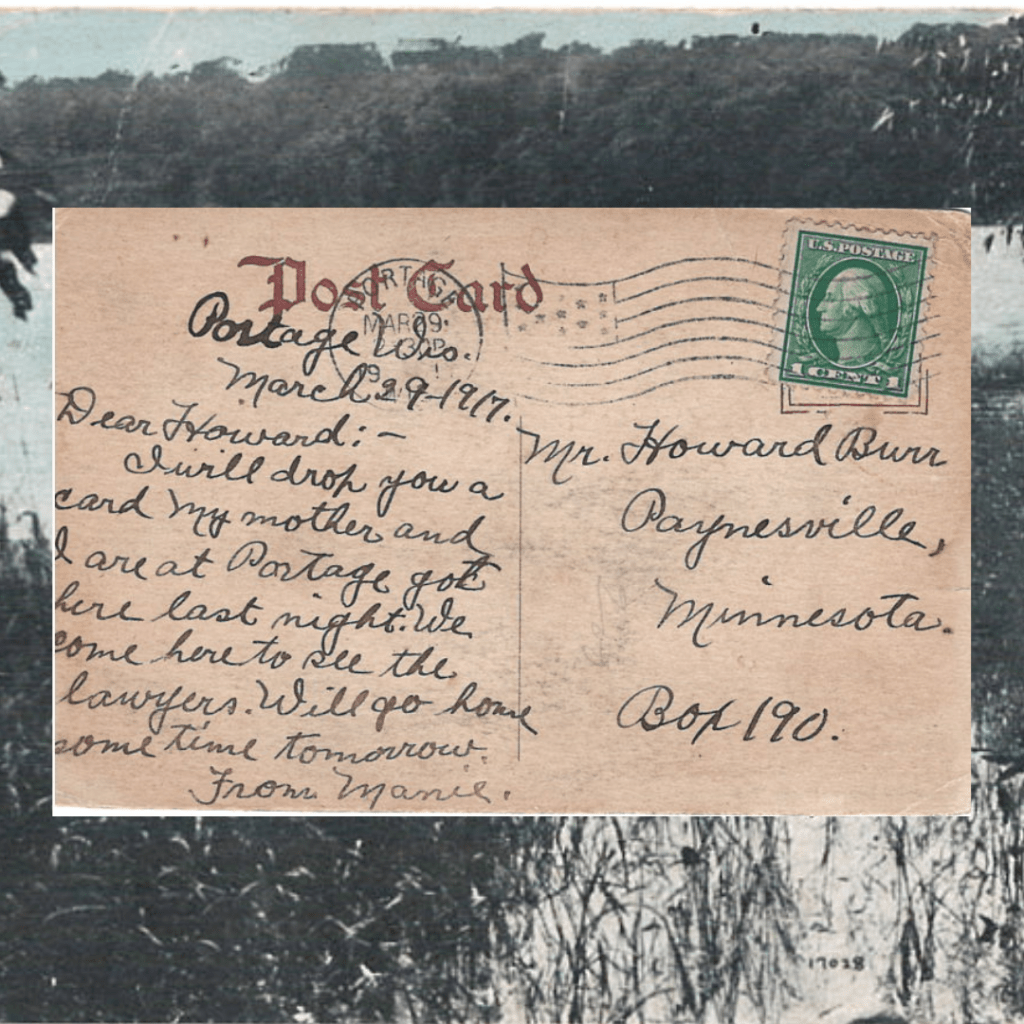 Post Card
MAR 29
U.S. POSTAGE
1 CENT 1
Portage Wis.
March 29-1917.
Dear Howard:-
I will drop you a
card My mother and
I are at Portage got
here last night. We
come here to see the
lawyers. Will go home
some time tomorrow.
From Manie.
Mr. Howard Burr
Paynesville,
Minnesota.
Box 190.
17028